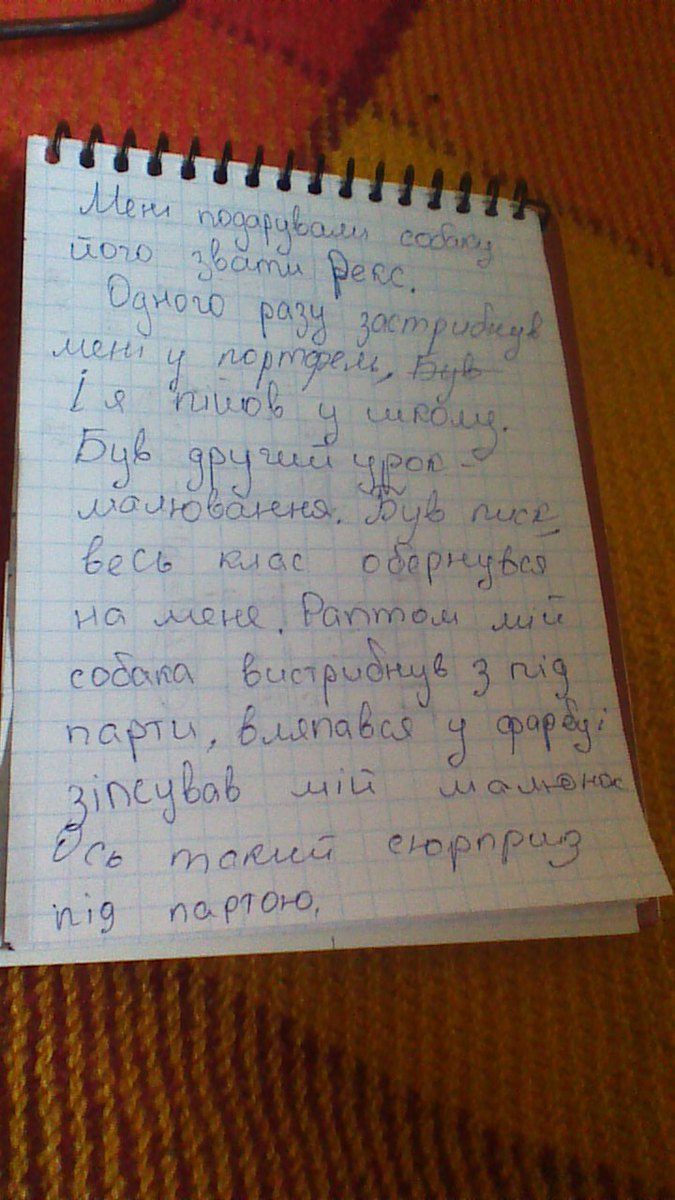 Мені подарували собаку
його звати Рекс.
Одного разу застрибнув
мені у портфель, Був
І я пішов у школу.
Був другий урок -
малювання. Був писк,
весь клас обернувся
на мене. Раптом мій
собака вистрибнув з під
парти, вляпався у фарбу і
зіпсував мій малюнок
Ось такий сюрприз
під партою.